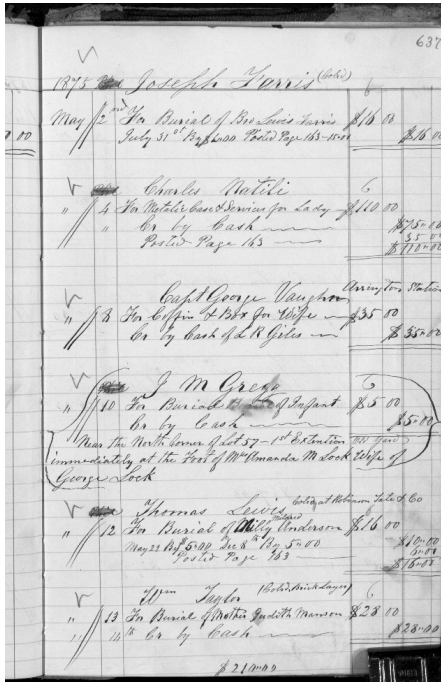 637
1875 Joseph Farris (Cold)
May 2nd For Burial of Bro Lewis Farris $16 00
July 31st By $1.00 Posted Page 163-15.00 $16 00
Charles Natili
" 4 For Metalic Case & Services for Lady $110.00
" Cr by Cash $75.00
Posted Page 163 35 00
$110.00
Capt George Vaughn Arrington Station
" 8 For Coffin & Box for Wife $35 00
Cr by Cash of L R Giles $35.00
J M Gregg
" 10 For Burial of Infant $5 00
Cr by Cash $5.00
Near the North Corner of Lot 57 - 1st Extention Old Yard
immediately at the Foot of Mrs Amanda M Lock Wife of
George Lock
Thomas Lewis Cold, at Robinson Tate & Co
" 12 For Burial of Milly Anderson $16 00
Mildred
May 22 By $5.00 Dec 8th By 5.00 $10.00
Posted Page 163 6.00
$16.00
Wm Taylor (Cold Brick Layer)
" 13 For Burial of Mother Judith Manson $28 00
" 14th Cr by Cash $28.00
$210.00